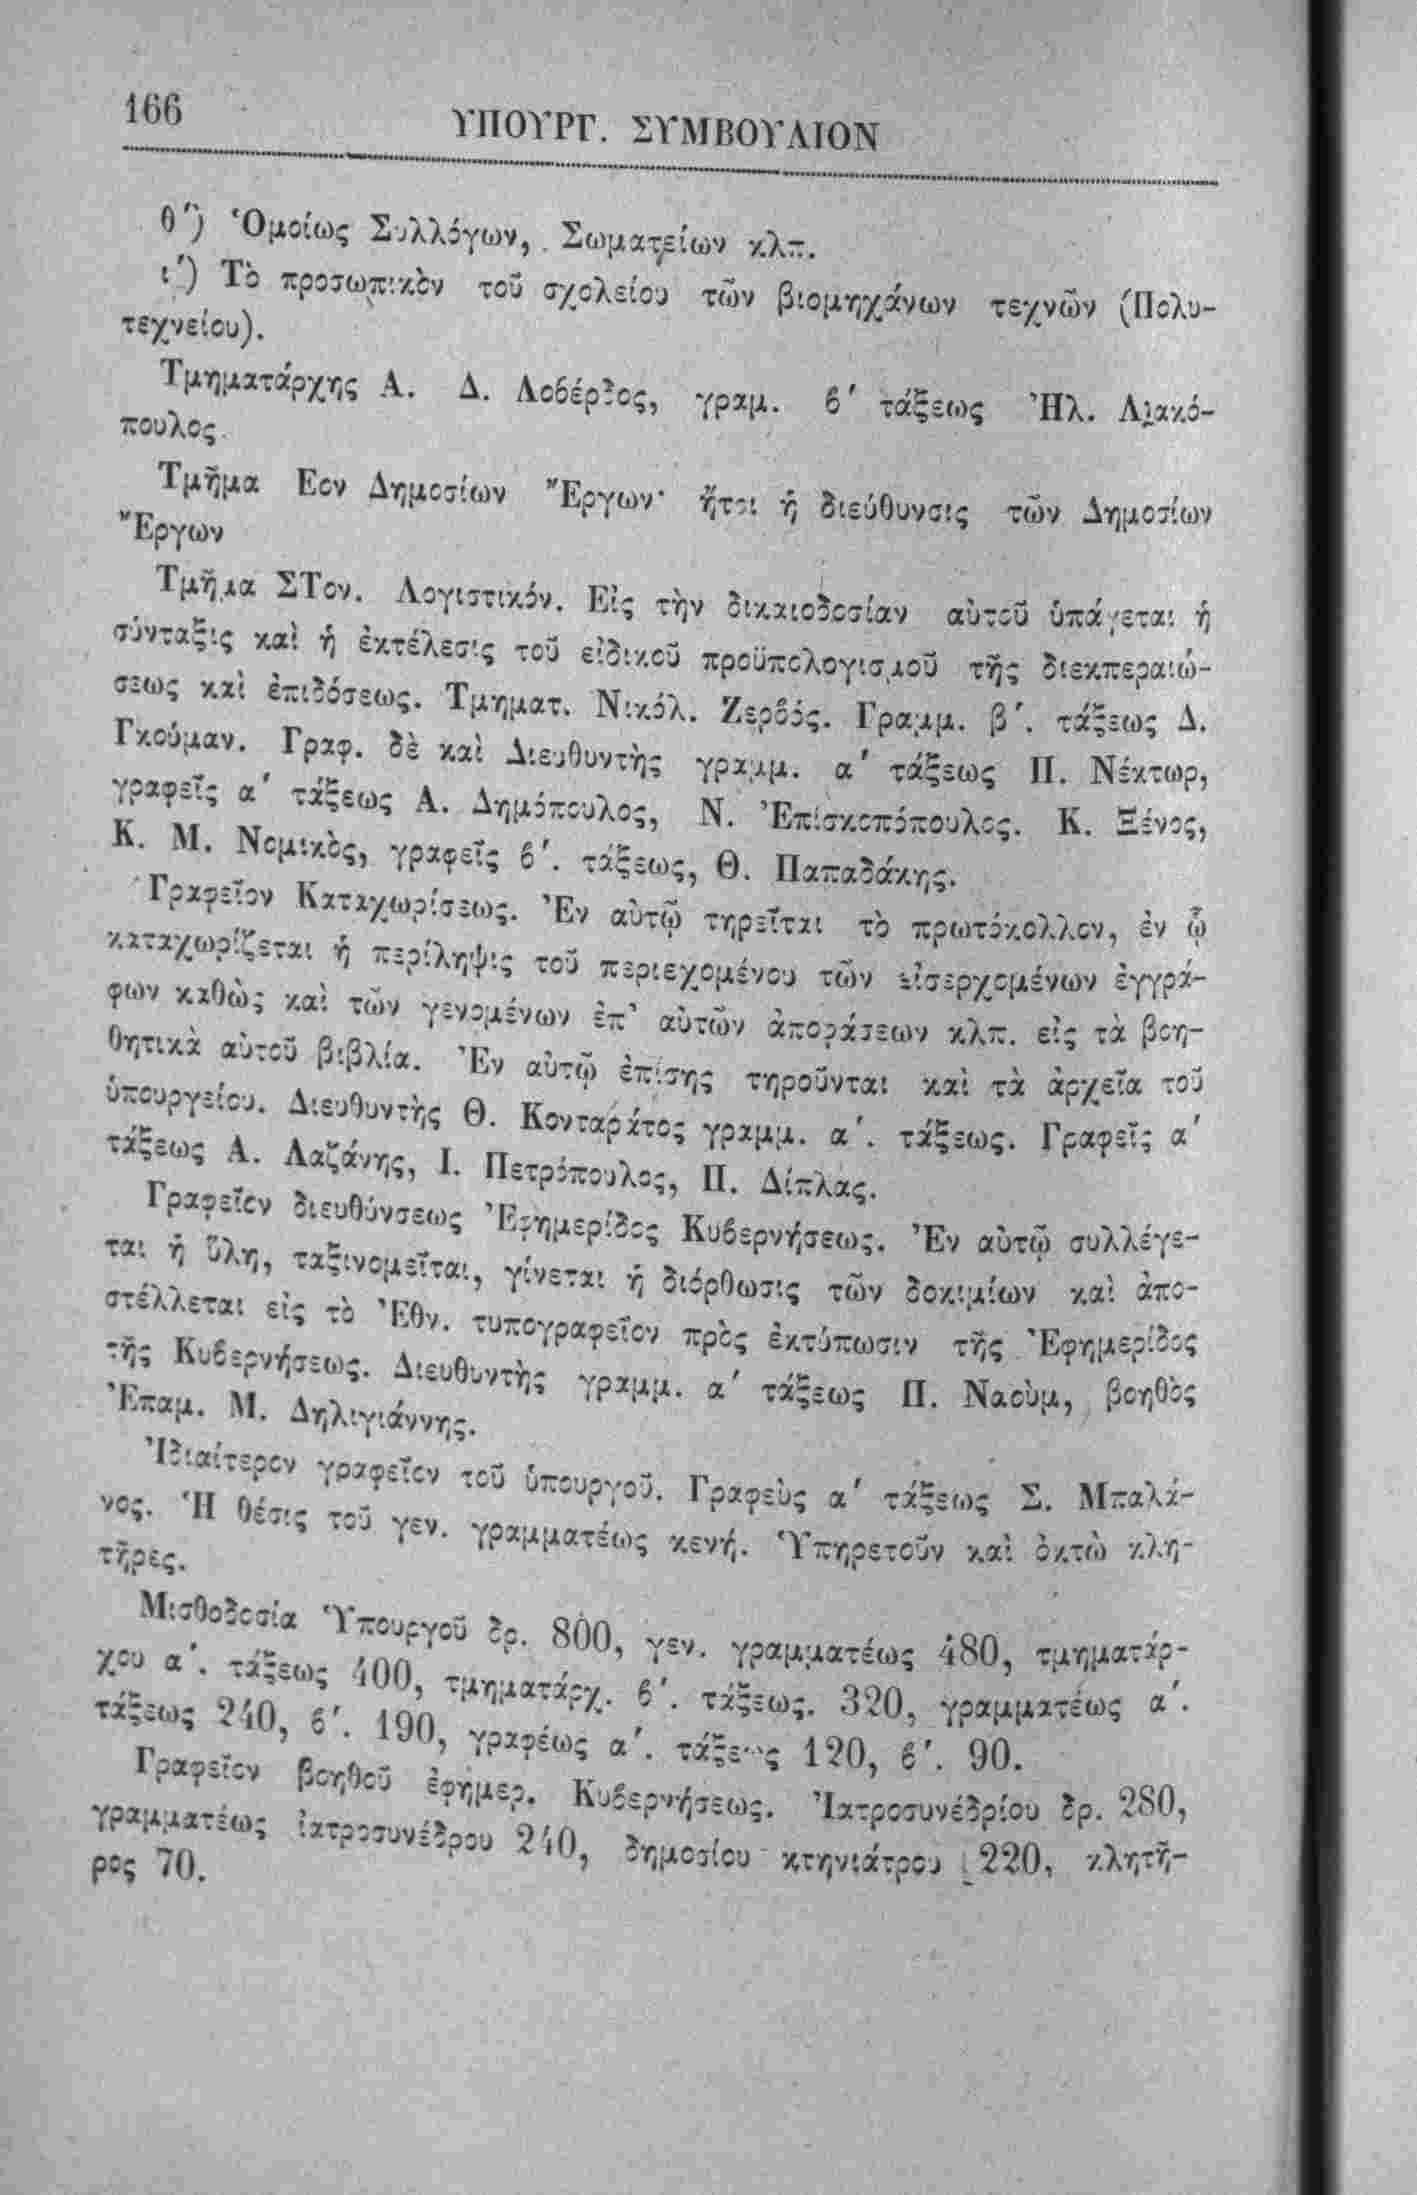 166
ΥΠΟΥΡΓ. ΣΥΜΒΟΥΛΙΟΝ
θ') Ὁμοίως Συλλόγων, Σωματείων κλπ.
ι') Τὸ προσωπικὸν τοῦ σχολείου τῶν βιομηχάνων τεχνῶν (Πολυ-
τεχνείου).
Τμηματάρχης Α. Δ. Λοβέρδος, γραμ. β' τάξεως Ἠλ. Λιακό-
πουλος.
Τμῆμα Εον Δημοσίων Ἔργων· ἤτοι ἡ διεύθυνσις τῶν Δημοσίων
Ἔργων
Τμῆμα ΣΤον. Λογιστικόν. Εἰς τὴν δικαιοδοσίαν αὐτοῦ ὑπάγεται ἡ
σύνταξις καὶ ἡ ἐκτέλεσις τοῦ εἰδικοῦ προϋπολογισμοῦ τῆς διεκπεραιώ-
σεως καὶ ἐπιδόσεως. Τμηματ. Νικόλ. Ζερβός. Γραμμ. β'. τάξεως Δ.
Γκούμαν. Γραφ. δὲ καὶ Διευθυντὴς γραμμ. α' τάξεως Π. Νέκτωρ,
γραφεῖς α' τάξεως Α. Δημόπουλος, Ν. Ἐπισκοπόπουλος. Κ. Ξένος,
Κ. Μ. Νομικὸς, γραφεῖς β'. τάξεως, Θ. Παπαδάκης.
Γραφεῖον Καταχωρίσεως. Ἐν αὐτῷ τηρεῖται τὸ πρωτόκολλον, ἐν ᾧ
καταχωρίζεται ἡ περίληψις τοῦ περιεχομένου τῶν εἰσερχομένων ἐγγρά-
φων καθὼς καὶ τῶν γενομένων ἐπ' αὐτῶν ἀποφάσεων κλπ. εἰς τὰ βοη-
θητικὰ αὐτοῦ βιβλία. Ἐν αὐτῷ ἐπίσης τηροῦνται καὶ τὰ ἀρχεῖα τοῦ
ὑπουργείου. Διευθυντὴς Θ. Κονταράτος γραμμ. α'. τάξεως. Γραφεῖς α'
τάξεως Α. Λαζάνης, Ι. Πετρόπουλος, Π. Δίπλας.
Γραφεῖον διευθύνσεως Ἐφημερίδος Κυβερνήσεως. Ἐν αὐτῷ συλλέγε-
ται ἡ ὕλη, ταξινομεῖται, γίνεται ἡ διόρθωσις τῶν δοκιμίων καὶ ἀπο-
στέλλεται εἰς τὸ Ἐθν. τυπογραφεῖον πρὸς ἐκτύπωσιν τῆς Ἐφημερίδος
τῆς Κυβερνήσεως. Διευθυντὴς γραμμ. α' τάξεως Π. Ναοὺμ, βοηθὸς
Ἐπαμ. Μ. Δηλιγιάννης.
Ἰδιαίτερον γραφεῖον τοῦ ὑπουργοῦ. Γραφεὺς α' τάξεως Σ. Μπαλά-
νος. Ἡ θέσις τοῦ γεν. γραμματέως κενή. Ὑπηρετοῦν καὶ ὀκτὼ κλη-
τῆρες.
Μισθοδοσία Ὑπουργοῦ δρ. 800, γεν. γραμματέως 480, τμηματάρ-
χου α'. τάξεως 400, τμηματάρχ. β'. τάξεως. 320, γραμματέως α'.
τάξεως 240, β'. 190, γραφέως α'. τάξεως 120, β'. 90.
Γραφεῖον βοηθοῦ ἐφημερ. Κυβερνήσεως. Ἰατροσυνέδρίου δρ. 280,
γραμματέως ἰατροσυνέδρου 240, δημοσίου κτηνιάτρου 220, κλητῆ-
ρος 70.